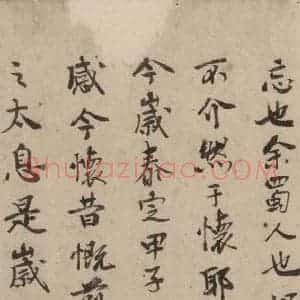 忘也余蜀人也
不介然于懷耶
今歲春定甲子
感今懷昔慨
之太息是歲